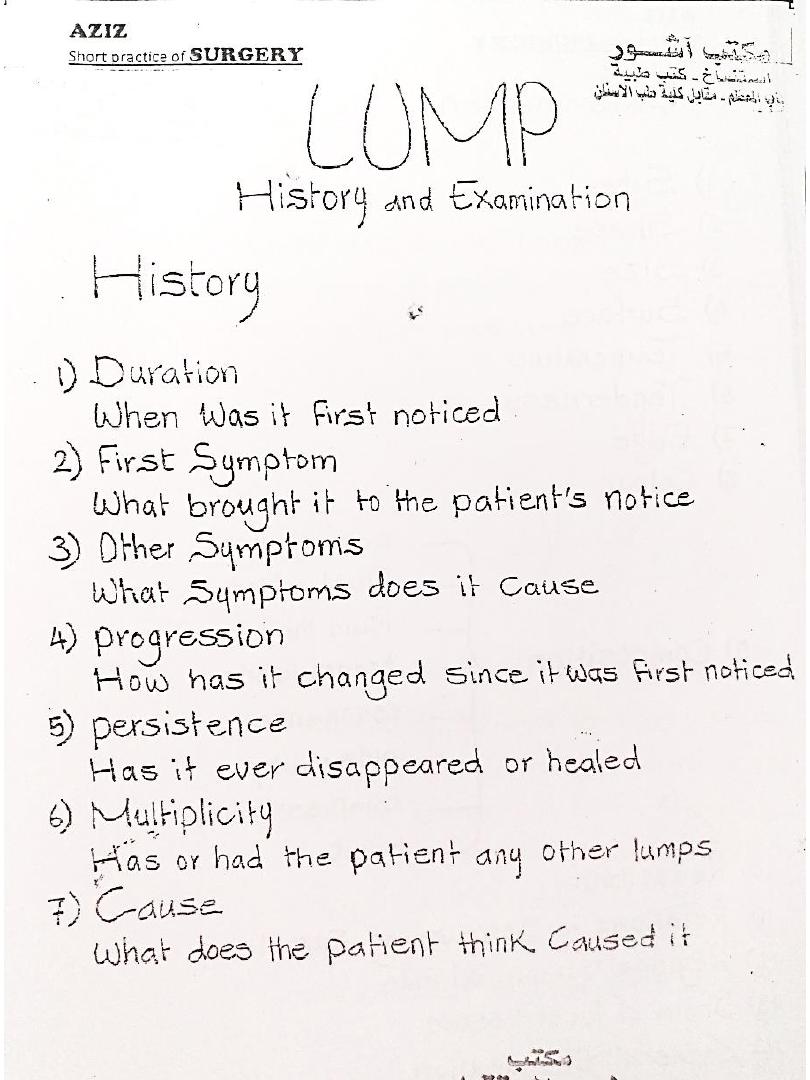 AZIZ
Short practice of SURGERY
مكتب آشور
استنساخ - كتب طبية
باب المعظم - مقابل كلية طب الاسنان
LUMP
History and Examination
History
1) Duration
When Was it first noticed
2) First Symptom
What brought it to the patient's notice
3) Other Symptoms
What Symptoms does it Cause
4) progression
How has it changed since it was first noticed
5) persistence
Has it ever disappeared or healed
6) Multiplicity
Has or had the patient any other lumps
7) Cause
What does the patient think Caused it
مكتب